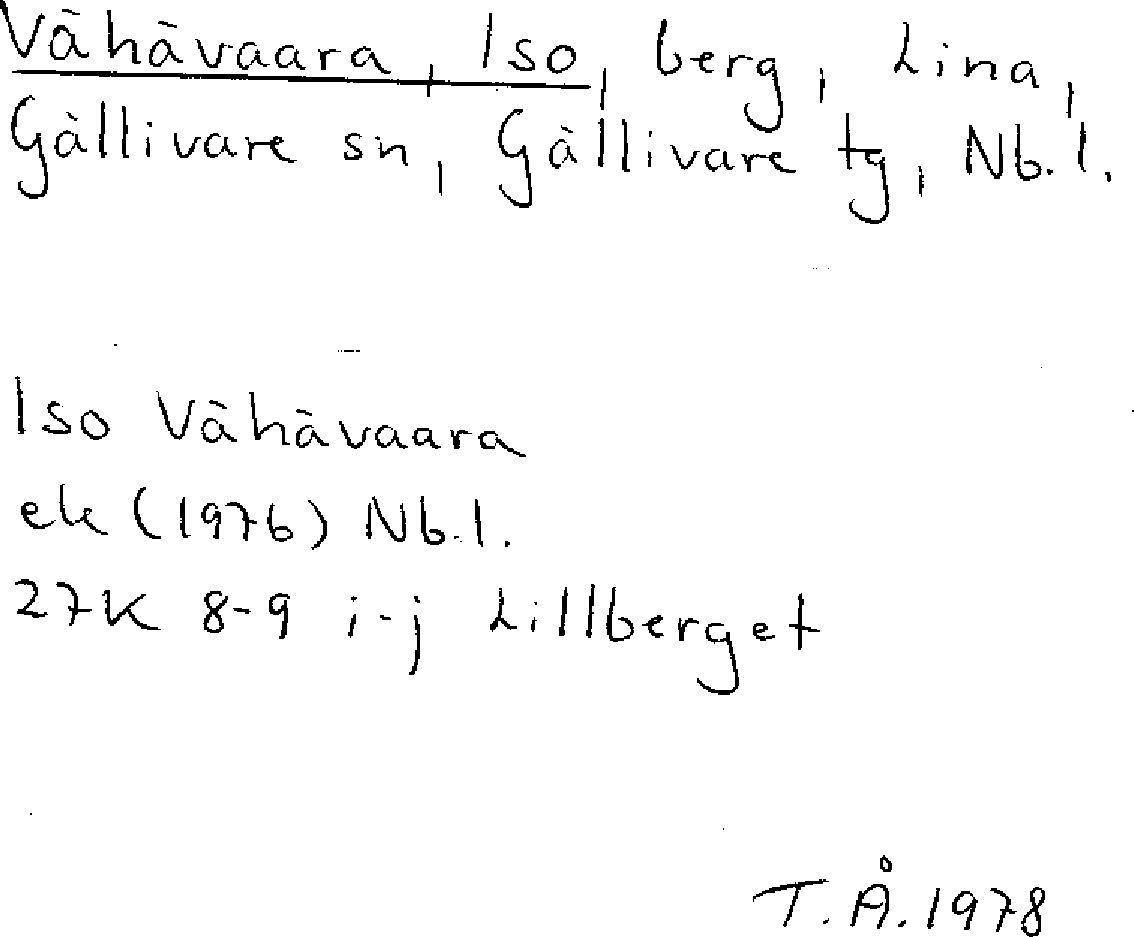 Vähävaara, Iso, berg, Lina,
Gällivare sn, Gällivare tg, Nb.l.
Iso Vähävaara
ek (1976) Nb.l.
27K 8-9 i-j Lillberget
T.Å.1978